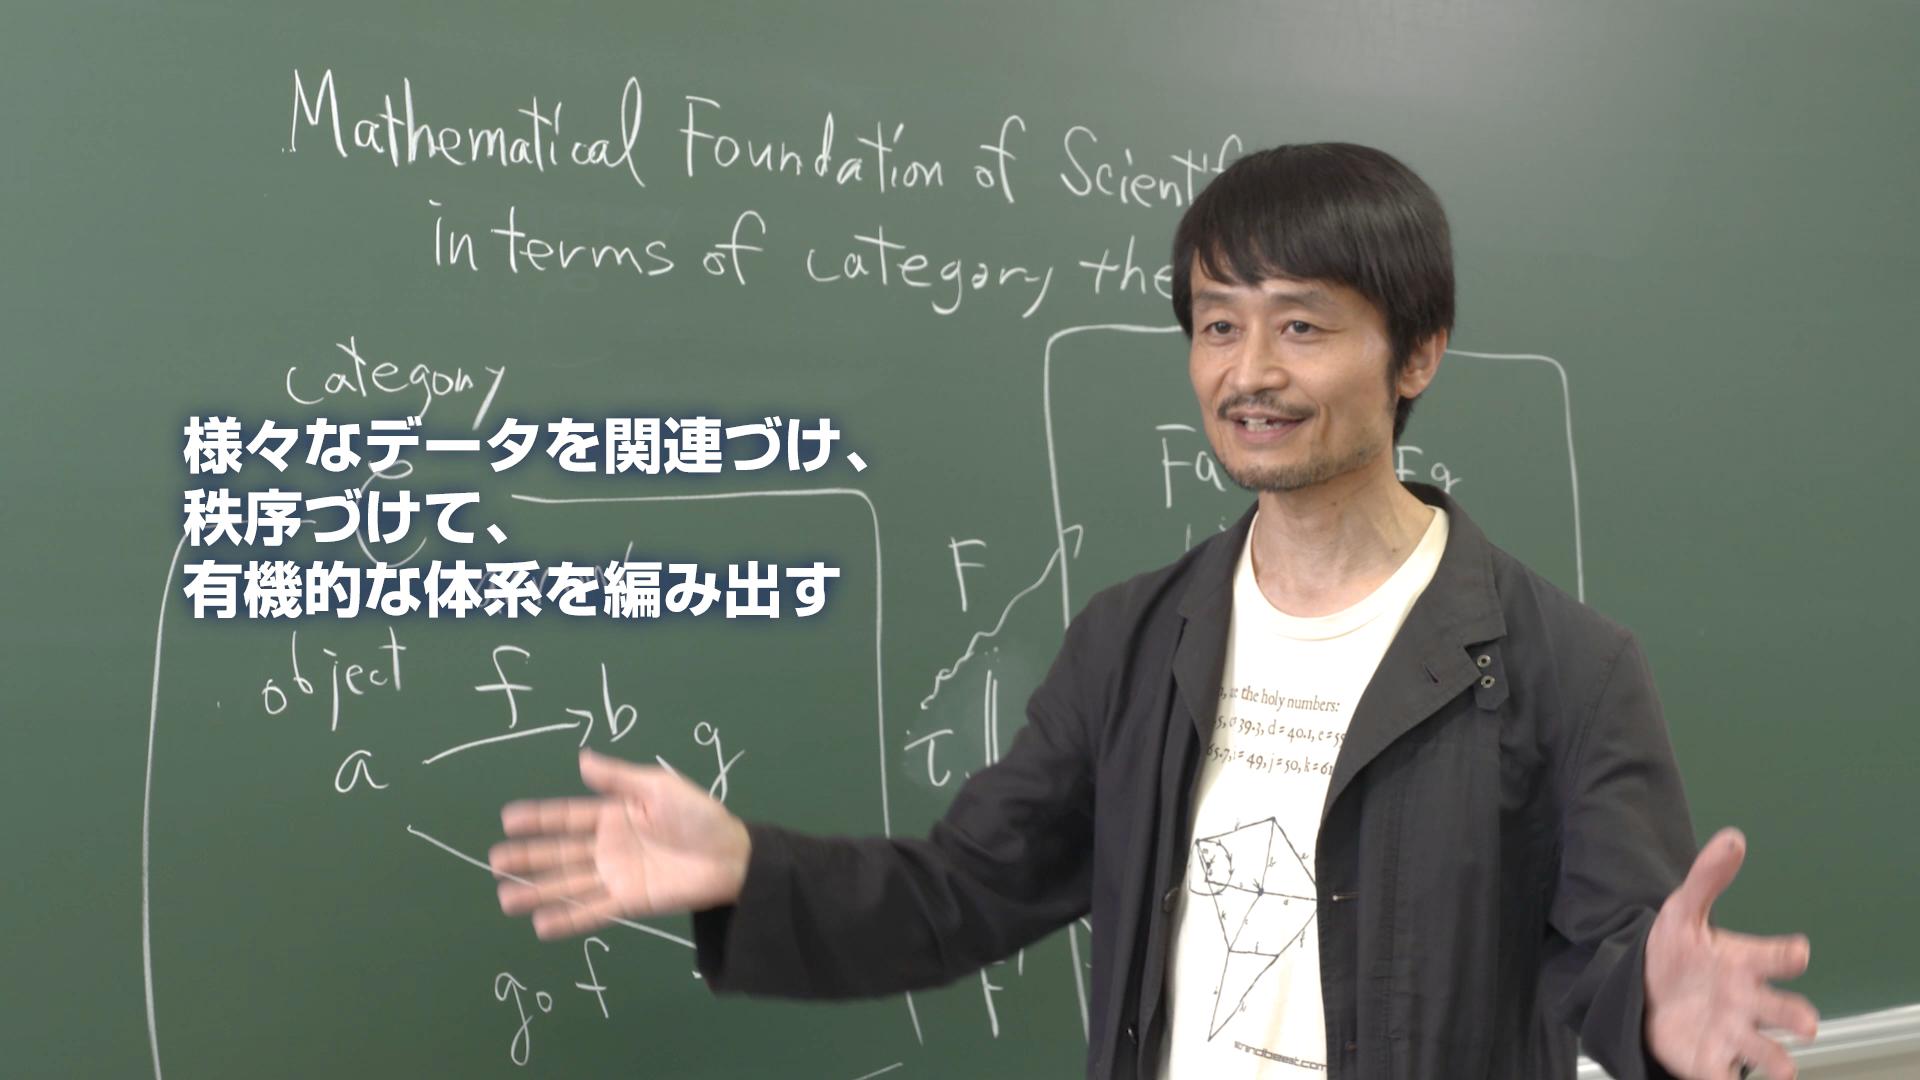 Mathematical Foundation of Scientif
in terms of category the
category
様々なデータを関連づけ、
秩序づけて、
有機的な体系を編み出す
object
f
a
b
g
g∘f
F
τ
F'
Fa
Fg
the holy numbers:
39.3, d=40.1, e=55
i=49, j=50, k=61